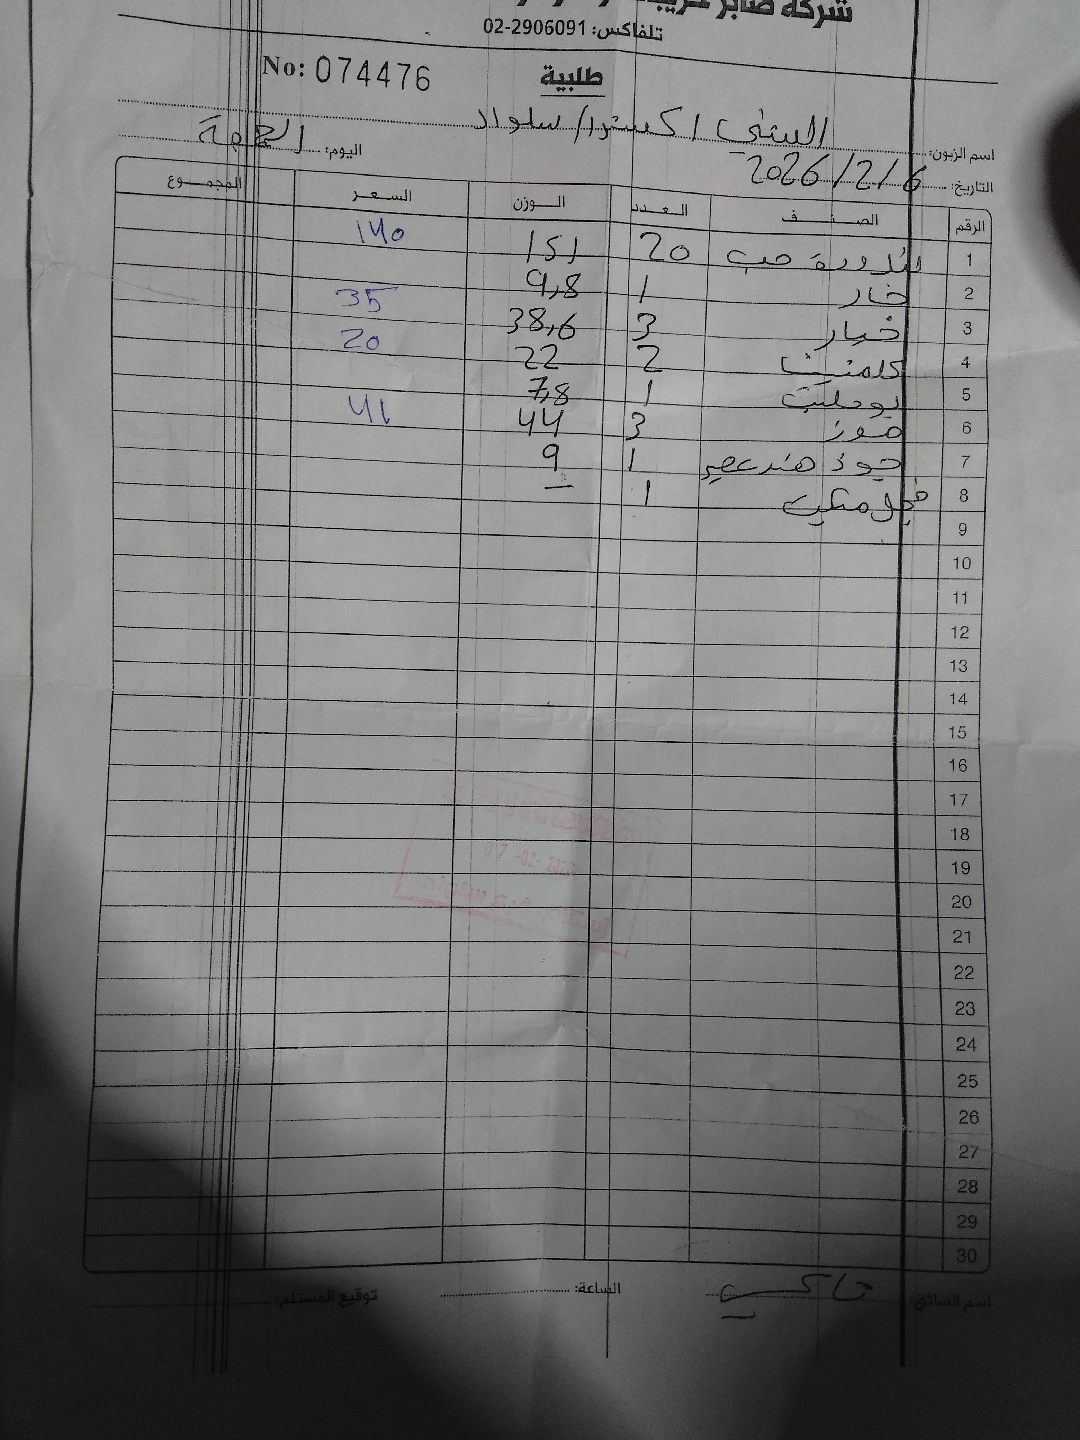 شركة صابر
تلفاكس: 02-2906091
No: 074476
طلبية
اسم الزبون: السني اكسترا/ سلواد
اليوم: الجمعة
التاريخ: 2026/2/6
الرقم الصنف العدد الوزن السعر المجموع
1 بندورة حب 20 151 140
2 خيار 1 9,8
3 خيار 3 38,6 35
4 كلمنتينا 2 22 20
5 بوملي 1 7,8
6 موز 3 44 41
7 جوز هند 1 9
8 فجل 1 –
9
10
11
12
13
14
15
16
17
18
19
20
21
22
23
24
25
26
27
28
29
30
اسم السائق:
الساعة:
توقيع المستلم: